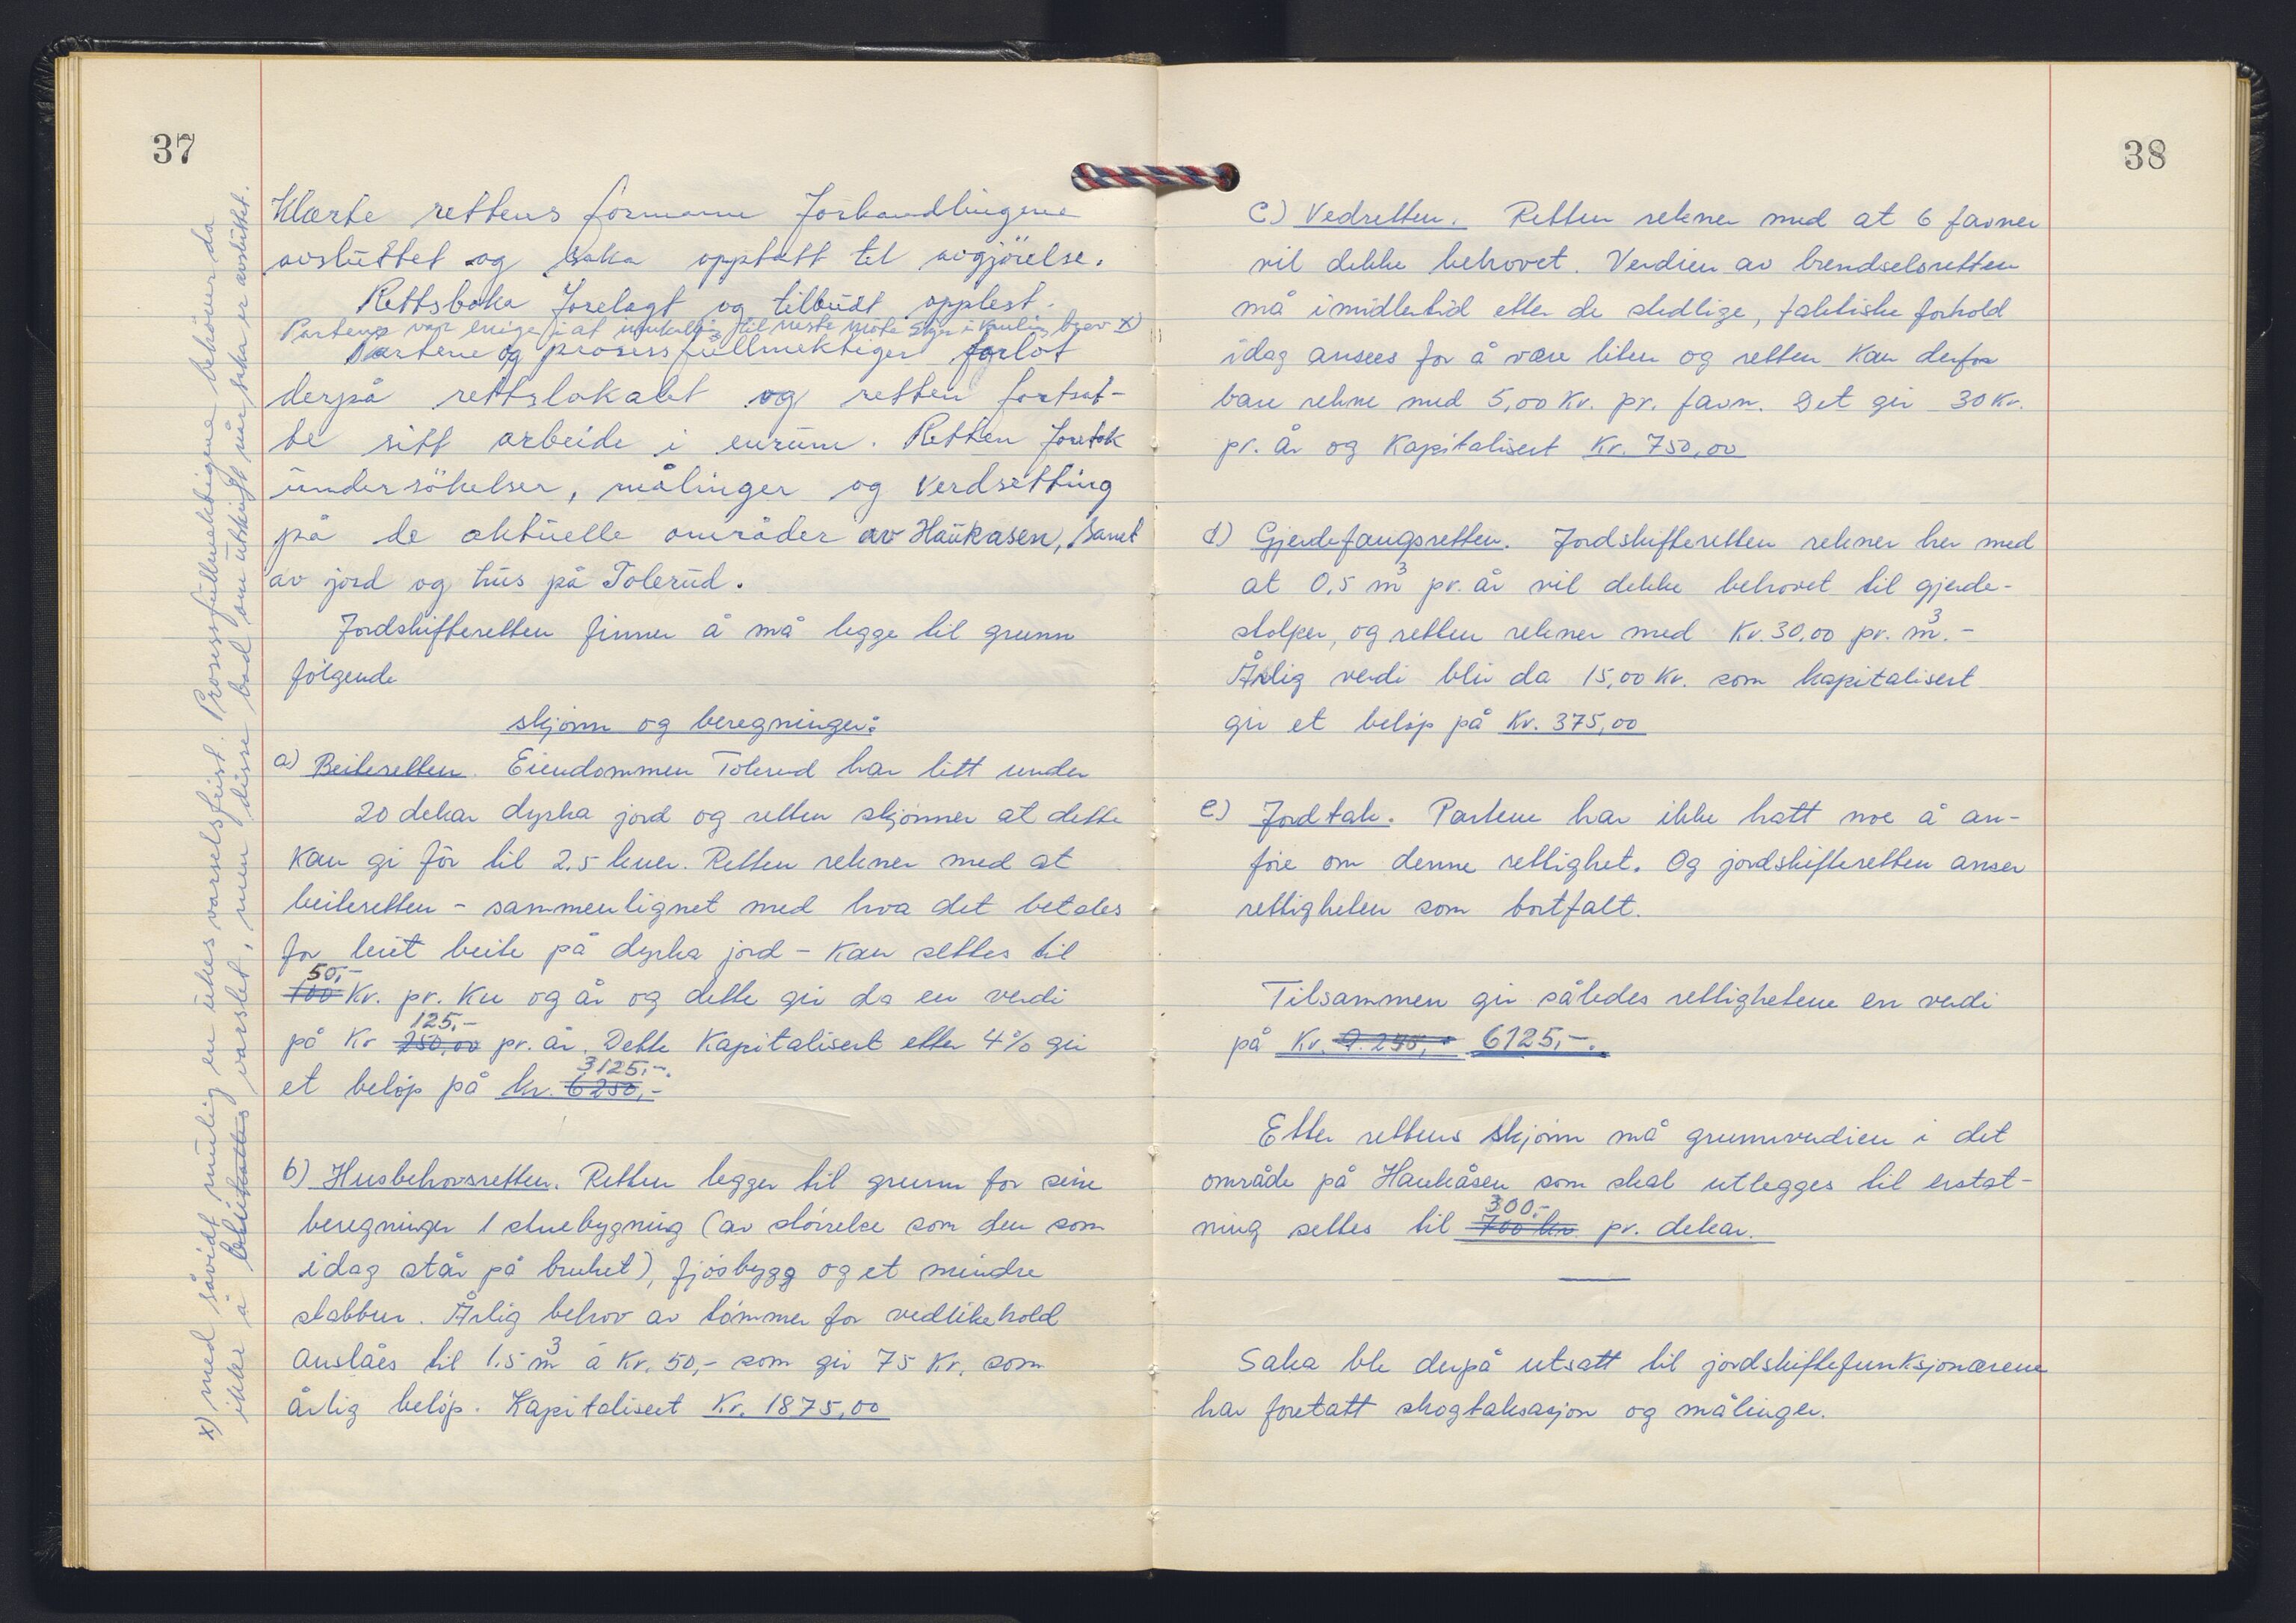 37
Klærte rettens formann forhandlingene
avsluttet og saka opptatt til avgjörelse.
Rettsboka forelagt og tilbudt opplest.
Partene var enige i at innkalling til neste möte skjer i vanlig brev x)
Partene og prosessfullmektiger forlot
derpå rettslokalet og retten fortsat-
te sitt arbeide i enrum. Retten foretok
undersökelser, målinger og verdsetting
på de aktuelle områder av Haukåsen, samt
av jord og hus på Tolerud.
Jordskifteretten finner å må legge til grunn
följende
skjönn og beregninger:
a) Beiteretten. Eiendommen Tolerud har litt under
20 dekar dyrka jord og retten skjönner at dette
kan gi fôr til 2.5 kuer. Retten rekner med at
beiteretten - sammenlignet med hva det betales
for leiet beite på dyrka jord - kan settes til
50,-
100 Kr. pr. Ku og år og dette gir da en verdi
125,-
på Kr 250,00 pr. år. Dette Kapitalisert etter 4% gir
3125,-.
et belöp på kr. 6250,-
b) Husbehovsretten. Retten legger til grunn for sine
beregninger 1 stuebygning (av störrelse som den som
idag står på bruket), fjösbygg og et mindre
stabbur. Årlig behov av tömmer for vedlikehold
anslåes til 1.5 m³ á Kr. 50,- som gir 75 Kr. som
årlig belöp. Kapitalisert Kr. 1875,00
x) med såvidt mulig en ukes varselsfrist. Prosessfullmektigene behöver da
ikke å varslet, men disse bad om utskrift når saka er avsluttet.
38
C) Vedretten. Retten rekner med at 6 favner
vil dekke behovet. Verdien av brendselsretten
må imidlertid etter de stedlige, faktiske forhold
idag ansees for å være liten og retten kan derfor
bare rekne med 5,00 Kr. pr. favn. Det gir 30 Kr.
pr. år og Kapitalisert Kr. 750,00
d) Gjerdefangsretten. Jordskifteretten rekner her med
at 0,5 m³ pr. år vil dekke behovet til gjerde-
stolper, og retten rekner med Kr. 30,00 pr. m³.-
Årlig verdi blir da 15,00 Kr. som kapitalisert
gir et belöp på Kr. 375,00
e) Jordtak. Partene har ikke hatt noe å an-
före om denne rettighet. Og jordskifteretten anser
rettigheten som bortfalt.
Tilsammen gir således rettighetene en verdi
på Kr. 6125,-.
Etter rettens skjönn må grunnverdien i det
område på Haukåsen som skal utlegges til erstat-
300.-
ning settes til 700 kr pr. dekar.
Saka ble derpå utsatt til jordskiftefunksjonærene
har foretatt skogtaksasjon og målinger.